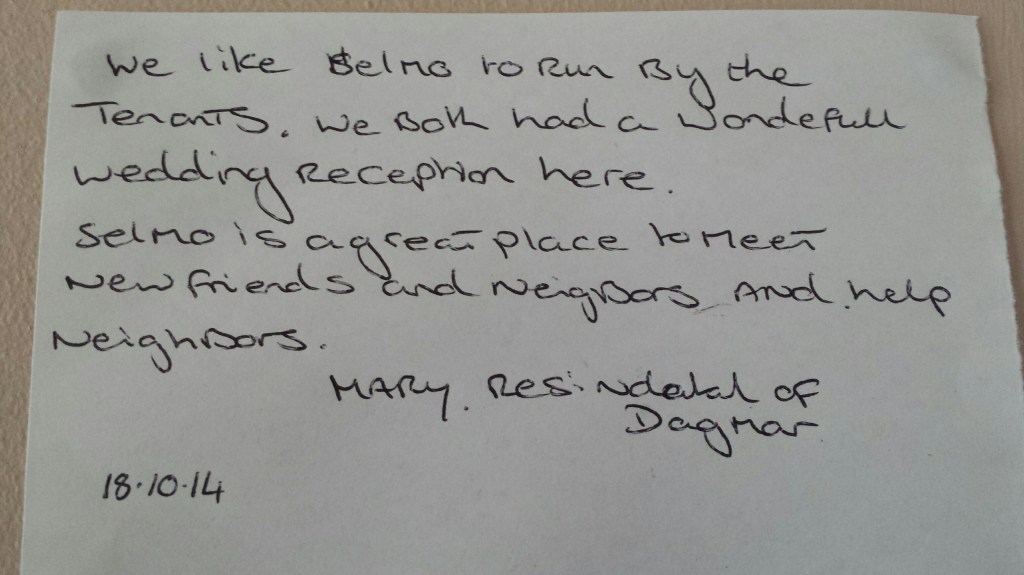 We like Selmo to Run By the
Tenants. We Both had a Wondefull
wedding Reception here.
Selmo is a great place to Meet
New friends and Neigbors And help
Neighbors.
MARY. Resindatal of
Dagmar
18.10.14